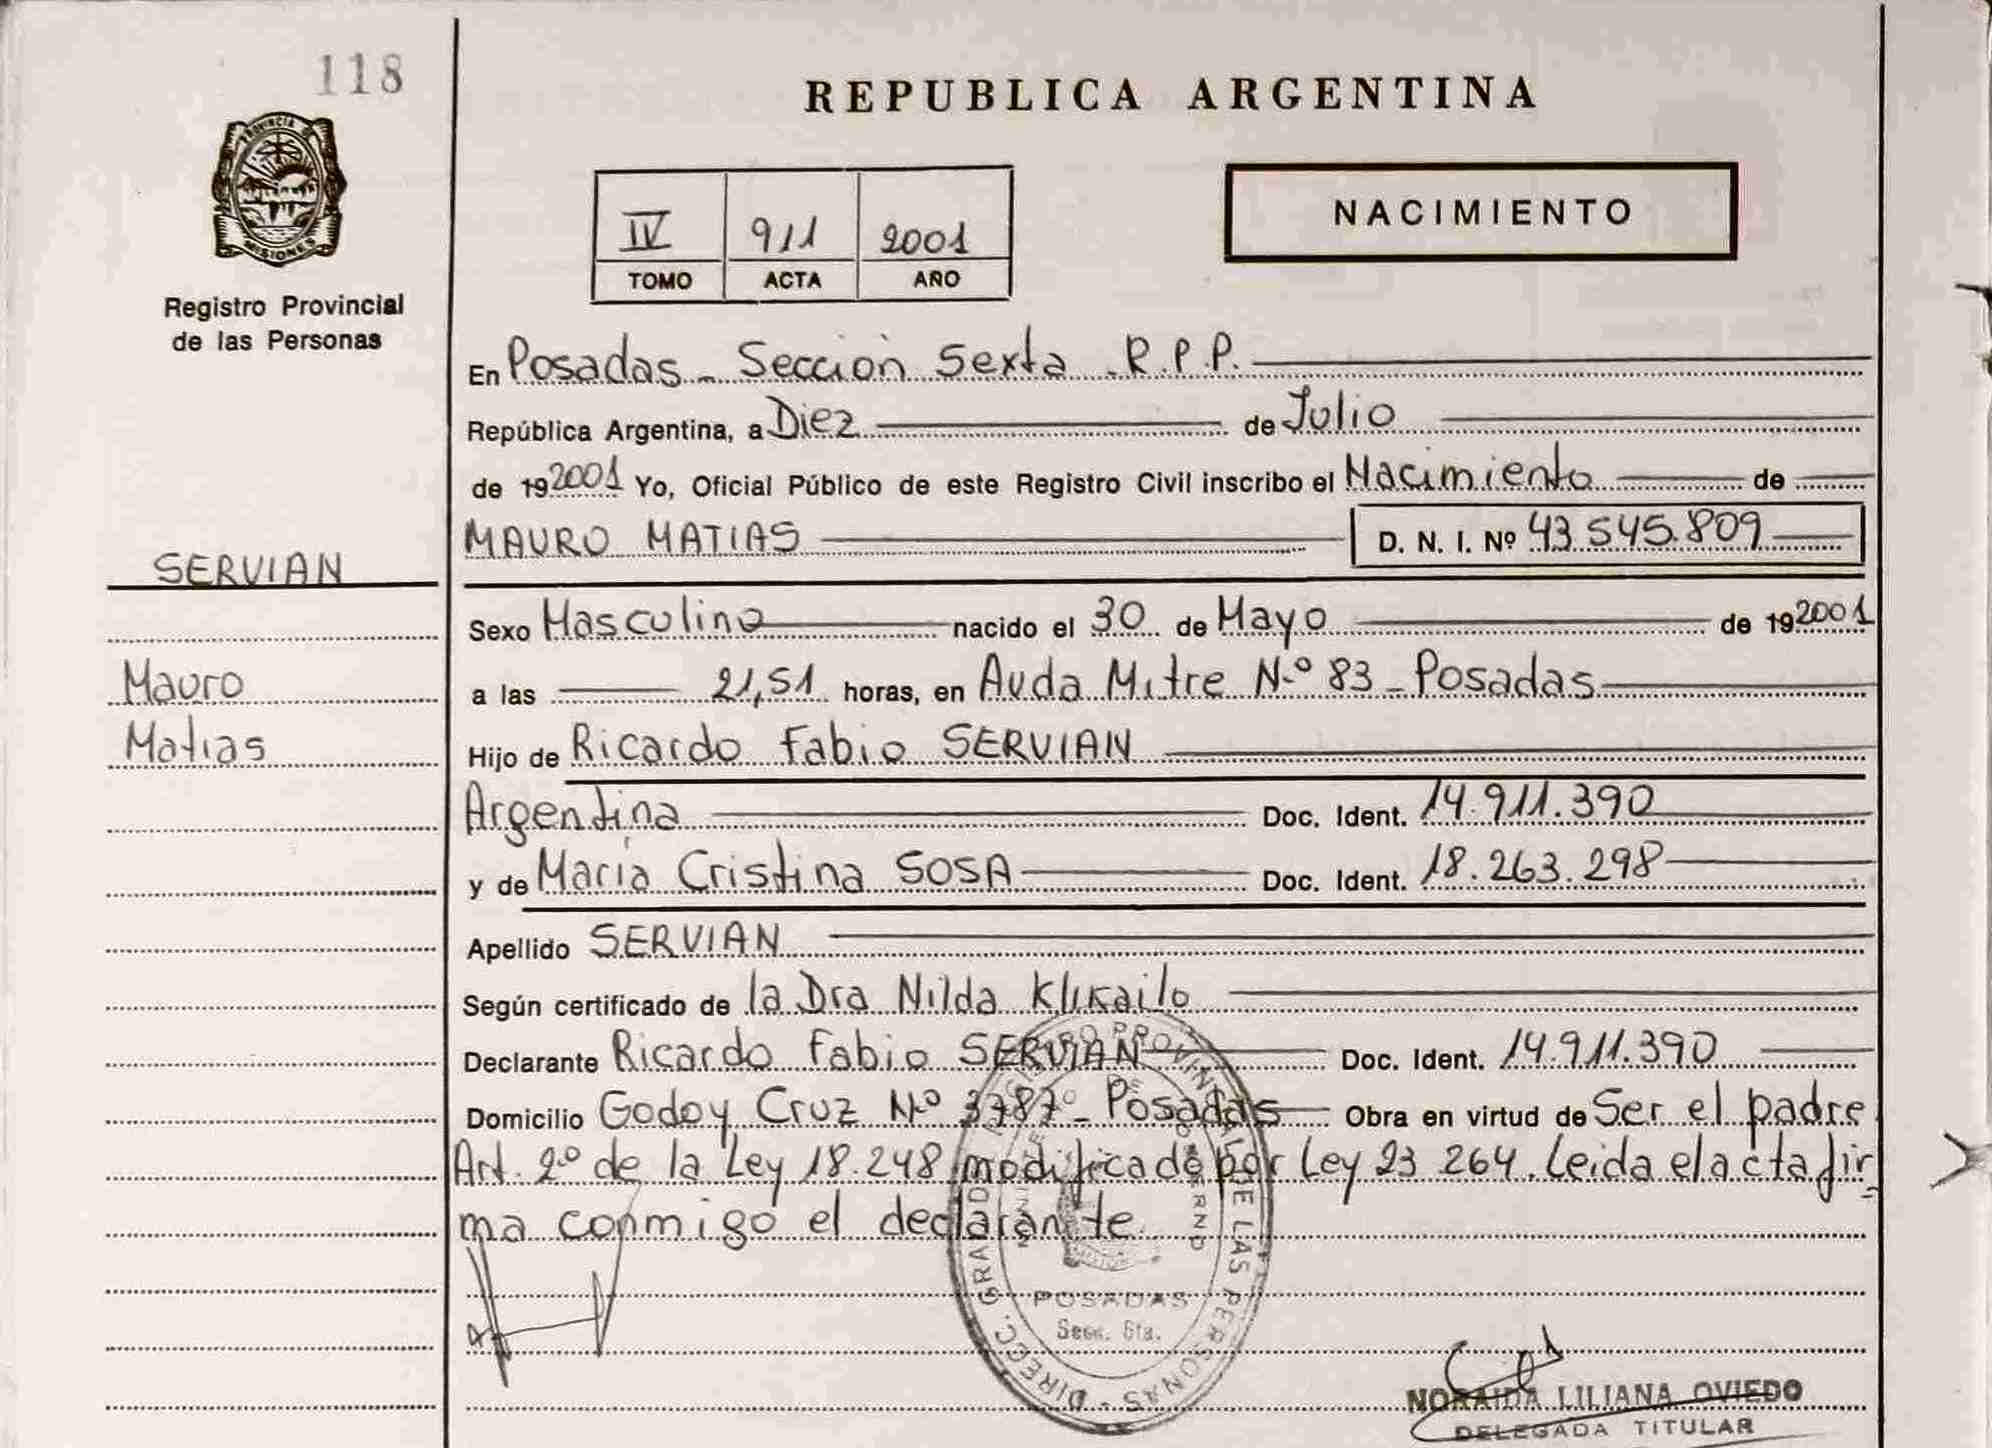 118
REPUBLICA ARGENTINA
PROVINCIA DE
MISIONES
Registro Provincial
de las Personas
IV 911 2001
TOMO ACTA AÑO
NACIMIENTO
En Posadas - Sección Sexta - R.P.P.
República Argentina, a Diez de Julio
de 192001 Yo, Oficial Público de este Registro Civil inscribo el Nacimiento de
MAURO MATIAS D. N. I. Nº 43.545.809
SERVIAN
Sexo Masculino nacido el 30 de Mayo de 192001
Mauro
a las 21,51 horas, en Avda Mitre N.º 83 - Posadas
Matias
Hijo de Ricardo Fabio SERVIAN
Argentina Doc. Ident. 14.911.390
y de Maria Cristina SOSA Doc. Ident. 18.263.298
Apellido SERVIAN
Según certificado de la Dra Nilda Klikailo
Declarante Ricardo Fabio SERVIAN Doc. Ident. 14.911.390
Domicilio Godoy Cruz Nº 3787 - Posadas Obra en virtud de Ser el padre
Art. 2º de la Ley 18.248 modificado por Ley 23 264. Leida el acta fir
ma conmigo el declarante.
DIRECC. GRAL. DEL REGISTRO PROVINCIAL DE LAS PERSONAS
POSADAS
Secc. 6ta.
NORAIDA LILIANA OVIEDO
DELEGADA TITULAR